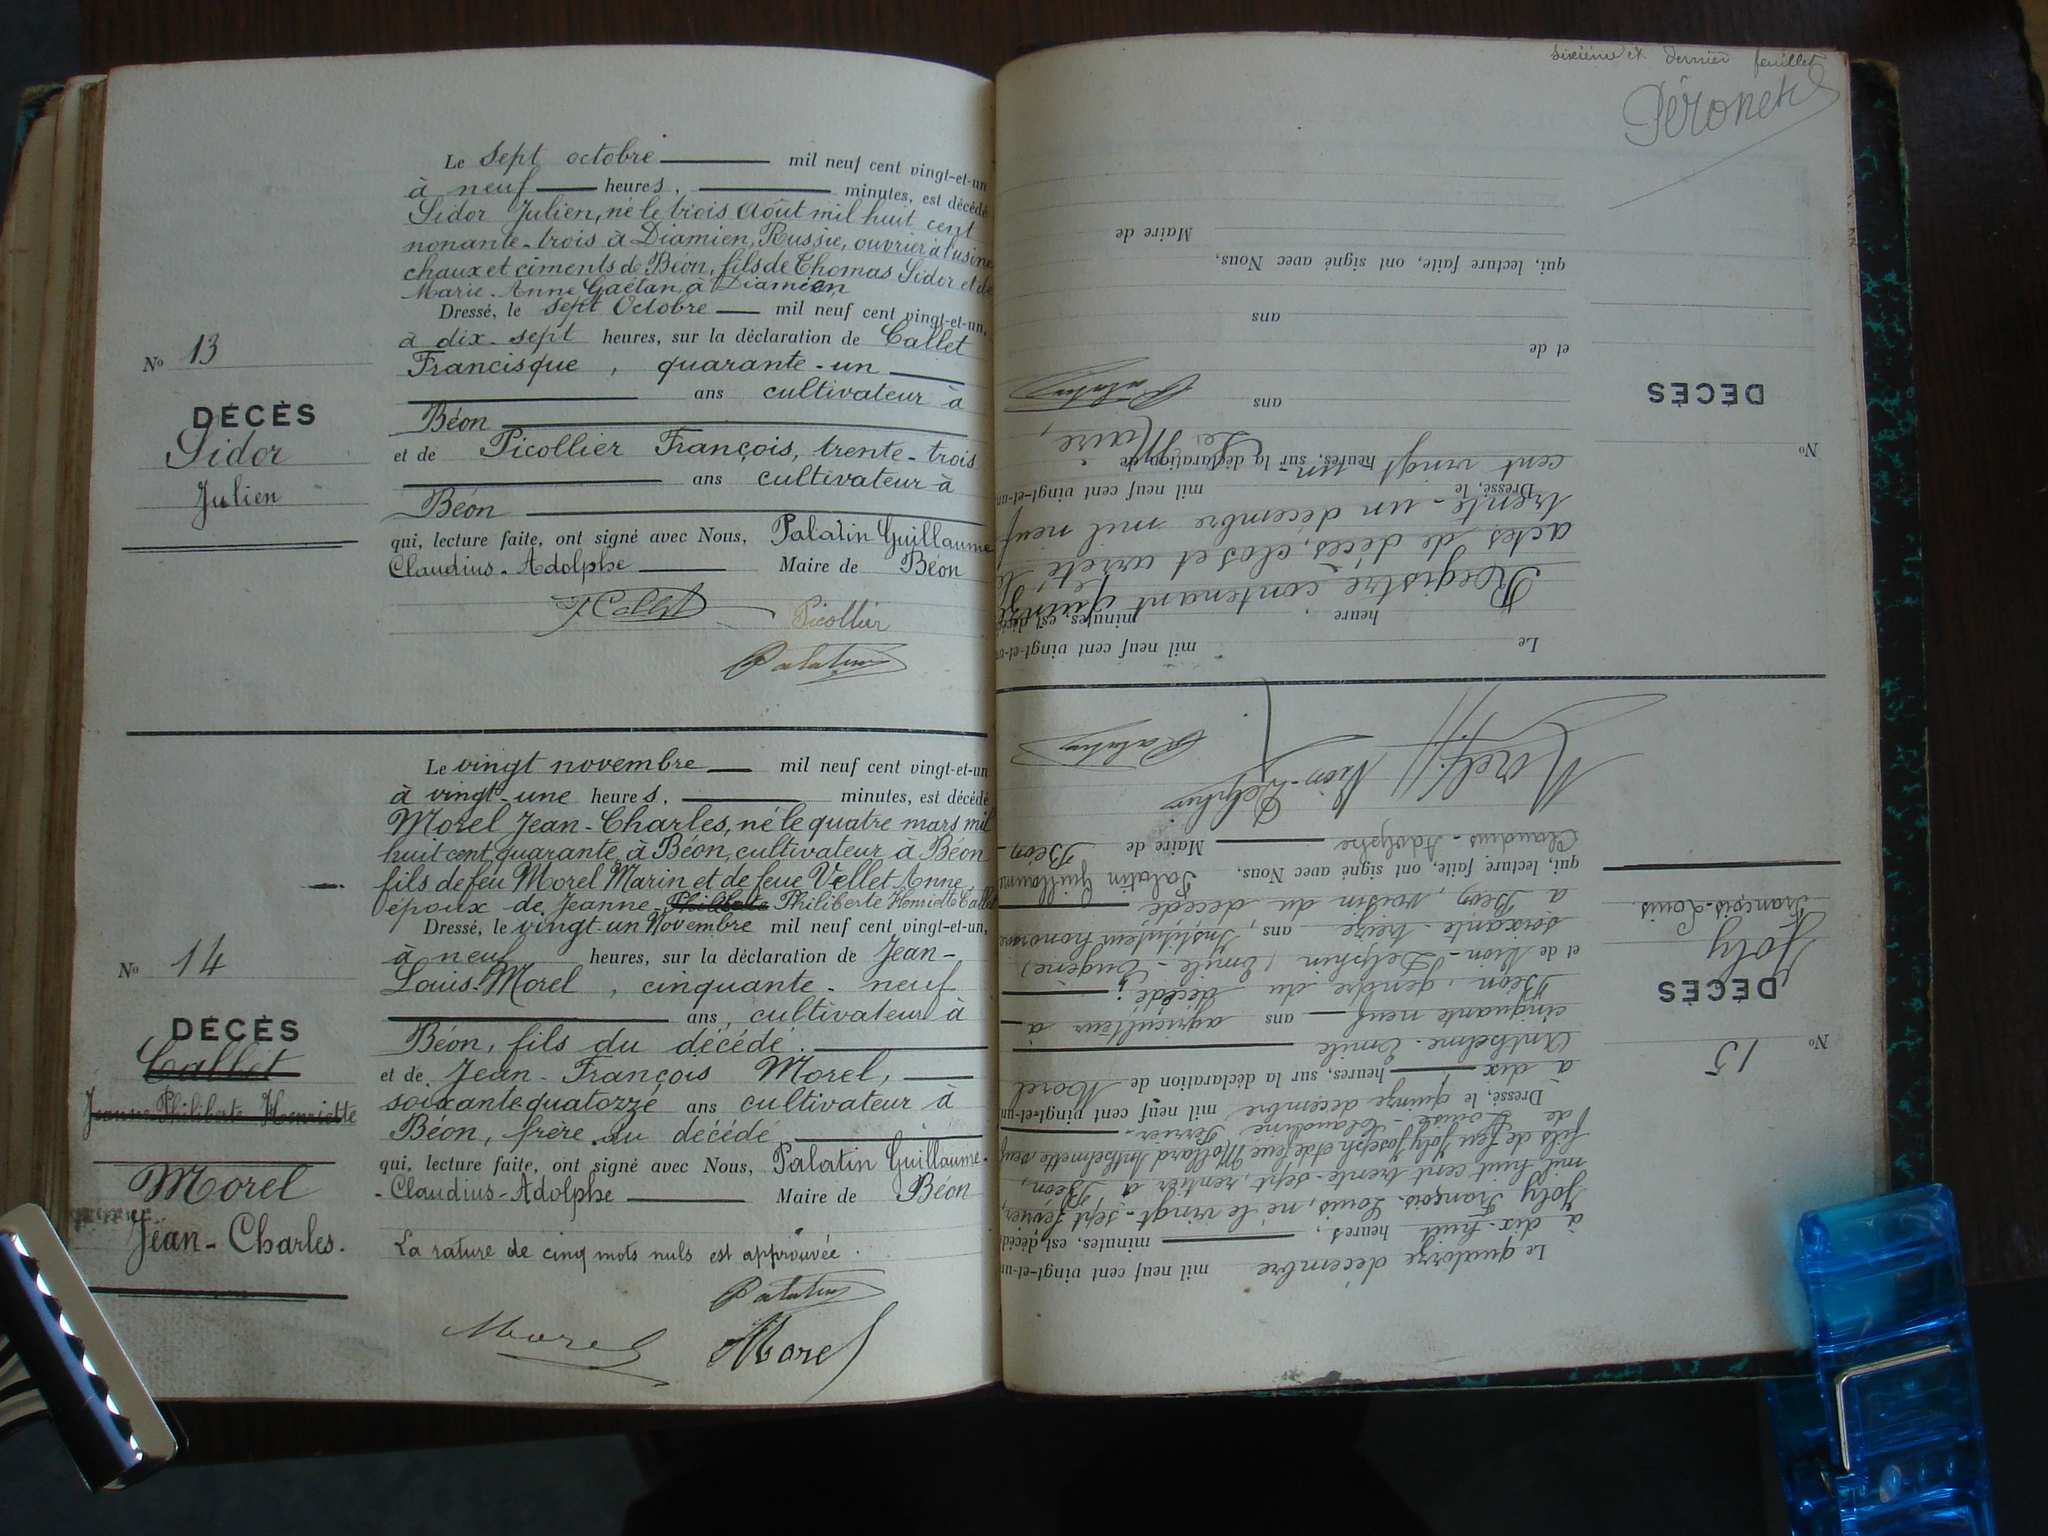 Le sept octobre mil neuf cent vingt-et-un
à neuf heures, minutes, est décédé
Sidor Julien, né le trois Août mil huit cent
nonante-trois à Diamien, Russie, ouvrier à l'usine
chaux et ciments de Béon, fils de Thomas Sidor et de
Marie-Anne Gaëtan, à Diamien
Dressé, le sept Octobre mil neuf cent vingt-et-un,
à dix-sept heures, sur la déclaration de Callet
Francisque, quarante-un
ans cultivateur à
Béon
et de Picollier François, trente-trois
ans cultivateur à
Béon
qui, lecture faite, ont signé avec Nous, Palatin Guillaume
Claudius-Adolphe Maire de Béon
Callet
Picollier
Palatin
No 13
DÉCÈS
Sidor
Julien
Le vingt novembre mil neuf cent vingt-et-un
à vingt-une heures, minutes, est décédé
Morel Jean-Charles, né le quatre mars mil
huit cent quarante, à Béon, cultivateur à Béon
fils de feu Morel Marin et de feue Vellet Anne,
époux de Jeanne Philiberte Henriette Callet
Dressé, le vingt-un Novembre mil neuf cent vingt-et-un,
à neuf heures, sur la déclaration de Jean-
Louis Morel, cinquante-neuf
ans, cultivateur à
Béon, fils du décédé.
et de Jean-François Morel,
soixante-quatorze ans cultivateur à
Béon, frère du décédé
qui, lecture faite, ont signé avec Nous, Palatin Guillaume-
-Claudius-Adolphe Maire de Béon
La rature de cinq mots nuls est approuvée.
Palatin
Morel
Morel
No 14
DÉCÈS
Callet
Jeanne Philiberte Henriette
Morel
Jean-Charles.
sixième et dernier feuillet
Péronet
Le quatorze décembre mil neuf cent vingt-et-un
à dix-huit heures, minutes, est décédé
Joly François-Louis, né le vingt-sept février,
mil huit cent trente-sept, rentier à Béon,
fils de feu Joly Joseph et de feue Mollard Anthelmette veuf
de Louise-Claudine Perrier.
Dressé, le quinze décembre mil neuf cent vingt-et-un
à dix heures, sur la déclaration de Morel
Anthelme-Emile
cinquante neuf ans agriculteur à
Béon, gendre du décédé;
et de Nion-Delphin (Emile-Eugène)
soixante-treize ans, Instituteur honoraire
à Béon, voisin du décédé
qui, lecture faite, ont signé avec Nous, Palatin Guillaume
Claudius-Adolphe Maire de Béon
Nion-Delphin
Morel
Palatin
No 15
DÉCÈS
Joly
François-Louis.
Le mil neuf cent vingt-et-un
heure, minutes, est décédé
Registre contenant quinze
actes de décès, clos et arrêté le
trente-un décembre mil neuf
Dressé, le mil neuf cent vingt-et-un
cent vingt un
heures, sur la déclaration de
Le Maire,
ans
Palatin
et de
ans
qui, lecture faite, ont signé avec Nous,
Maire de
No
DÉCÈS